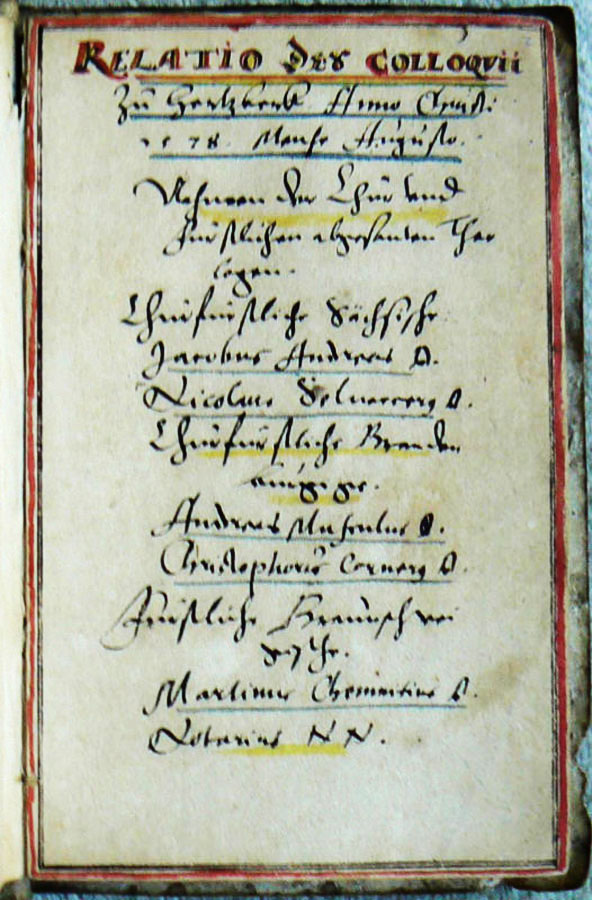 RELATIO des COLLOQVII
Zu Hertzberk Anno Christi
1578. Mense Augusto.
Nahmen der Chur vnd
furstlichen abgesanten Theo
logen.
Churfurstliche Sächsische
Jacobus Andreas D.
Nicolaus Selneccerg D.
Churfurstliche Branden
burgige.
Andreas Musculus D.
Christophorus Cornerg D.
Furstliche Braunschwei
gische.
Martinus Chemnitius D.
Notarius N N.